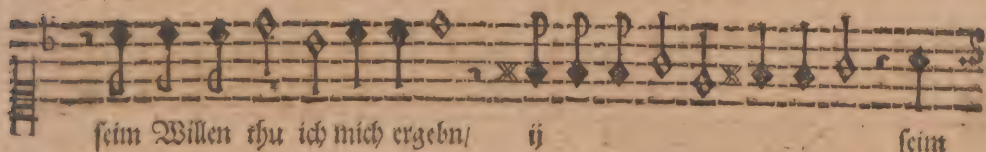 seim Willen thu ich mich ergebn/ ij seim